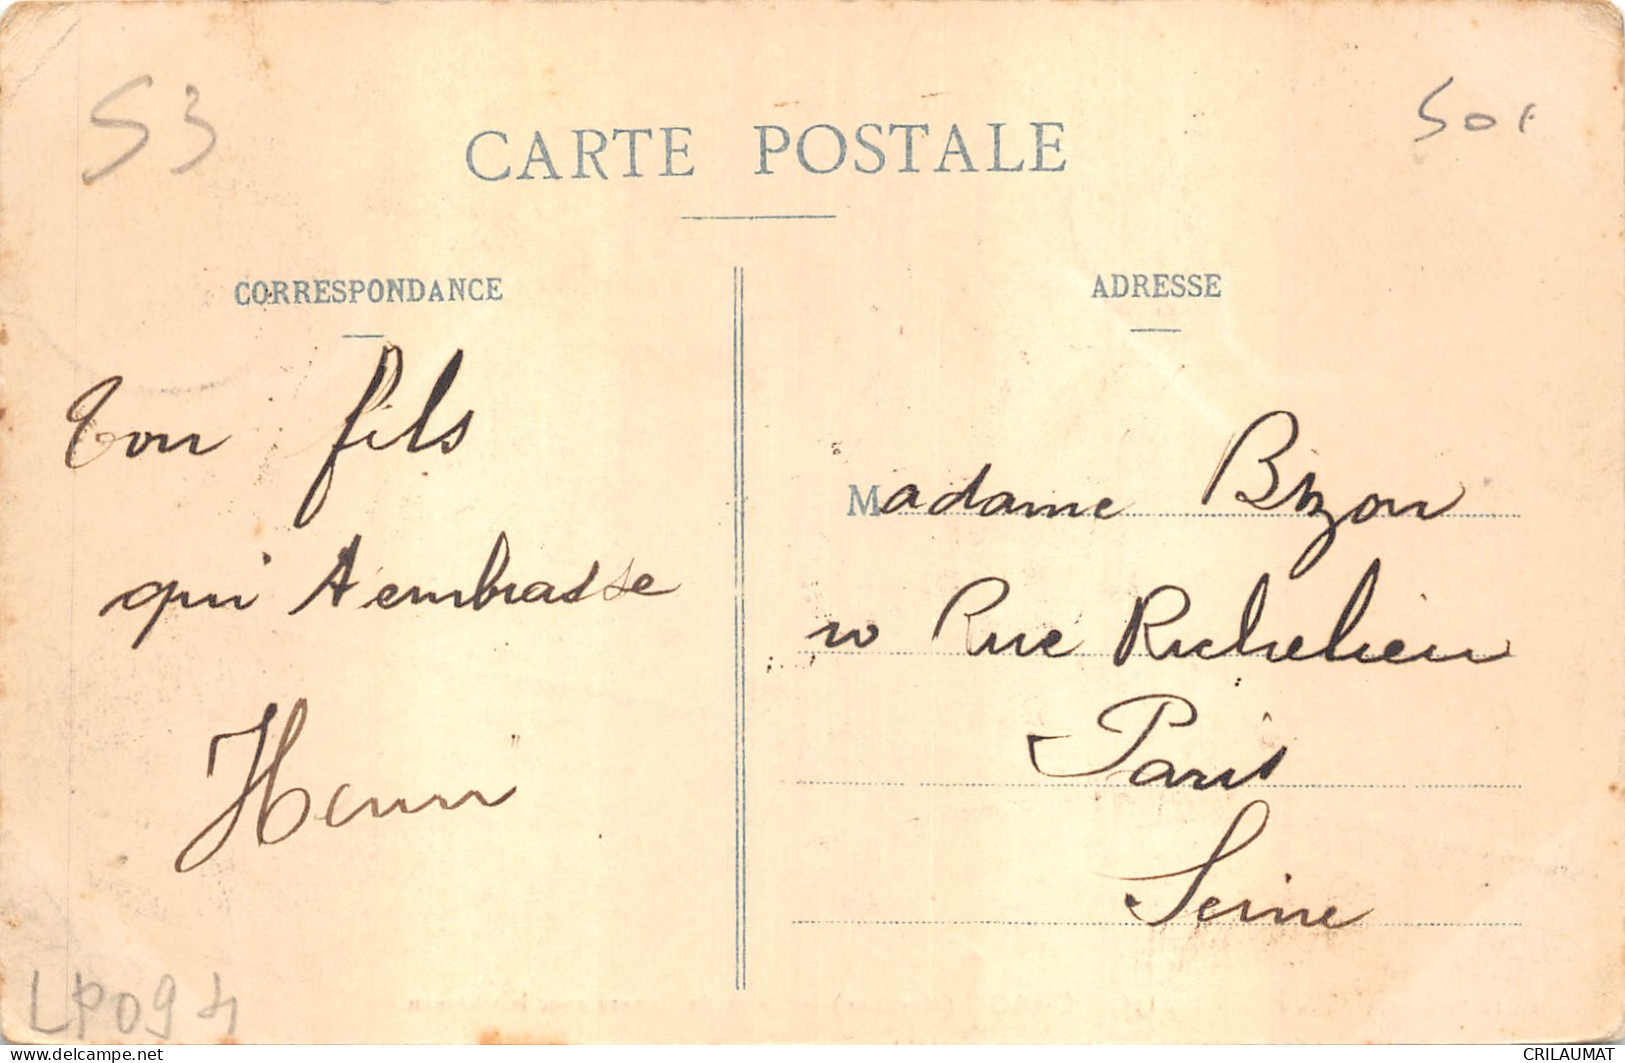 53
CARTE POSTALE
CORRESPONDANCE
Ton fils
qui t'embrasse
Henri
ADRESSE
Madame Bizon
Rue Richelieu
Paris
Seine
LP094
CRILAUMAT